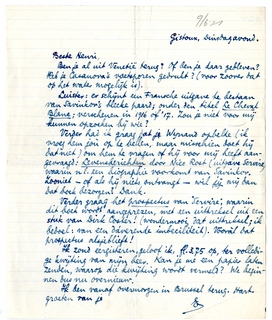 9/6 31
Gistoux, Dinsdagavond.
Beste Henri,
Ben je al uit Venetië terug? Of ben je daar gebleven?
Heb je Casanova's voetsporen gedrukt? (voor zoover dat
op het water mogelijk is).
Luister: er schijnt een Fransche uitgave te bestaan
van Savinkov's bleeke paard, onder den titel Le Cheval
Blanc; verschenen in 1916 of '17. Zou je niet voor mij
kunnen opzoeken bij wie?
Verder had ik graag dat je Wijnand opbelde (ik
vroeg hem dien op te bellen, maar misschien doet hij
het niet) om hem te vragen of hij voor mij heeft
gevraagd: Levensberichten door Nico Rost (uitgever Servire)
waarin n.l. een biographie voorkomt van Savinkov.
Zooniet - of als hij niets ontvangt - wil jij mij dan
dat boek bezorgen? Dank.
Verder graag het prospectus van Servire, waarin
dit boek wordt aangeprezen, met een uittreksel uit een
stuk van Dirk Coster! (wondermooi, dat uittreksel; ik
bedoel: van een daverende imbeciliteit). Vooral dat
prospectus alsjeblieft!
Ik zond eergisteren, geloof ik, fl. 3,75 op, ter volledige
kwijting van mijn beer. Kan je me een papier laten
zenden, waarop die kwijting wordt vermeld? We beginnen
dus nu overnieuw.
Ik ben vanaf overmorgen in Brussel terug. Hart.
groeten van je
E